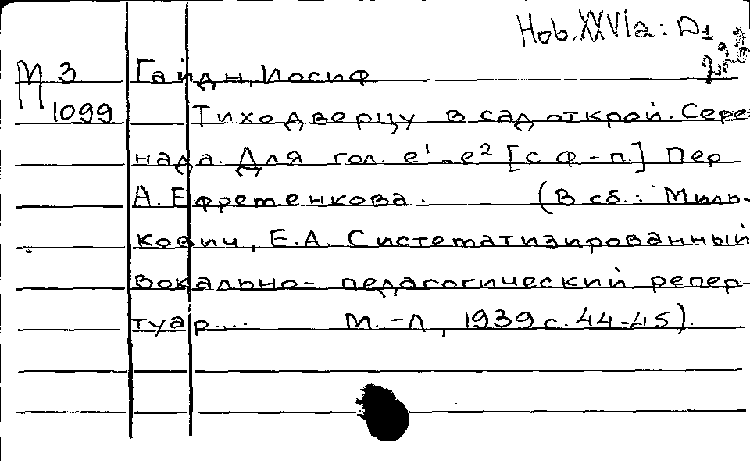 Hob.XXVIa: D1
М 3 Гайдн, Иосиф
П 1099 Тихо дверцу в сад открой. Сере-
нада. Для гол. e¹-e² [с ф-п.] Пер
А. Ефременкова. (В сб.: Миль-
кович, Е.А. Систематизированный
вокально-педагогический репер-
туар... М.-Л, 1939 с. 44-45).